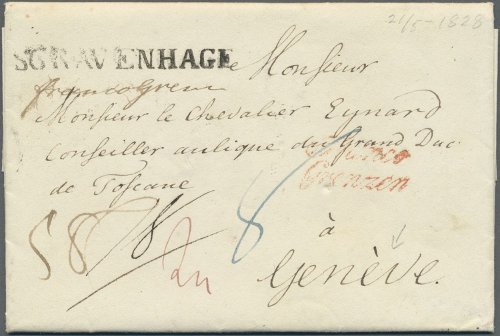 21/5-1828
SGRAVENHAGE
franco Grens
Monsieur
Monsieur le Chevalier Eynard
Conseiller aulique du Grand Duc
de Toscane
Franco
Grenzen
58
8
à
Genève.